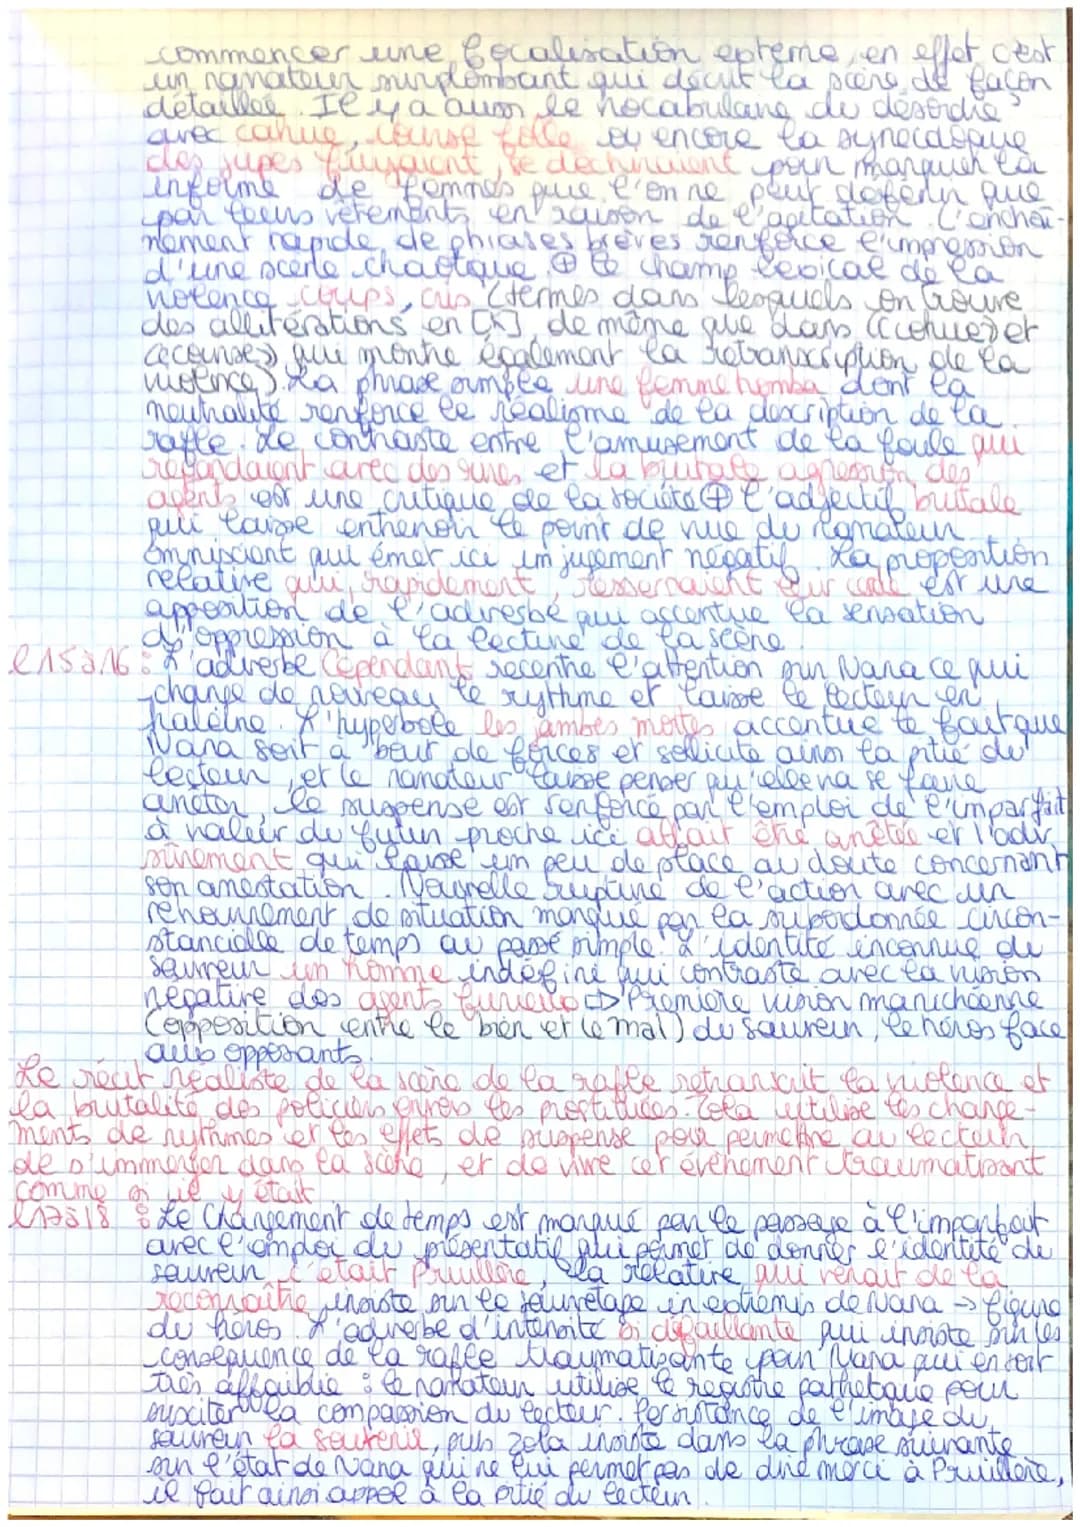 commencer une focalisation externe, en effet c'est
un narrateur surplombant qui décrit la scène de façon
détaillée. Il y a aussi le vocabulaire du désordre
avec cohue, course folle ou encore la synecdoque
des jupes fuyaient, se déchiraient pour marquer la
informe de femmes que l'on ne peut définir que
par leurs vêtements en raison de l'agitation. L'enchaî-
nement rapide de phrases brèves renforce l'impression
d'une scène chaotique. ⊕ le champ lexical de la
violence coups, cris (termes dans lesquels on trouve
des allitérations en [k], de même que dans «cohue» et
«course» qui montre également la retranscription de la
violence). La phrase simple une femme tomba dont la
neutralité renforce le réalisme de la description de la
rafle. Le contraste entre l'amusement de la foule qui
regardaient avec des rires et la brutale agression des
agents est une critique de la société ⊕ l'adjectif brutale
qui laisse entrevoir le point de vue du narrateur
omniscient qui émet ici un jugement négatif. La proposition
relative qui, rapidement, resserraient leur cercle est une
apposition de l'adverbe qui accentue la sensation
d'oppression à la lecture de la scène.
l15à16 : L'adverbe Cependant recentre l'attention sur Nana ce qui
change de nouveau le rythme et laisse le lecteur en
haleine. L'hyperbole les jambes mortes accentue le fait que
Nana soit à bout de forces et sollicite ainsi la pitié du
lecteur, et le narrateur laisse penser qu'elle va se faire
arrêter, le suspense est renforcé par l'emploi de l'imparfait
à valeur de futur proche ici allait être arrêtée et l'adv
sûrement qui laisse un peu de place au doute concernant
son arrestation. Nouvelle rupture de l'action avec un
retournement de situation marqué par la subordonnée circon-
stancielle de temps au passé simple. L'identité inconnue du
sauveur un homme indéfini qui contraste avec la vision
négative des agents furieux ⇨ Première vision manichéenne
(opposition entre le bien et le mal) du sauveur, le héros face
aux opposants.
Le récit réaliste de la scène de la rafle retranscrit la violence et
la brutalité des policiers envers les prostituées. Zola utilise les change-
ments de rythmes et les effets de suspense pour permettre au lecteur
de s'immerger dans la scène, et de vivre cet évènement traumatisant
comme si il y était
l17à18 : Le Changement de temps est marqué par le passage à l'imparfait
avec l'emploi du présentatif qui permet de donner l'identité du
sauveur c'était Prullière, la relative qui venait de la
reconnaître insiste sur le sauvetage in extrémis de Nana → figure
du héros. L'adverbe d'intensité si défaillante qui insiste sur les
conséquence de la rafle traumatisante pour Nana qui en sort
très affaiblie : le narrateur utilise le registre pathétique pour
susciter la compassion du lecteur. Persistance de l'image du
sauveur la soutenir, puis Zola insiste dans la phrase suivante
sur l'état de Nana qui ne lui permet pas de dire merci à Prullière,
il fait ainsi appel à la pitié du lecteur.